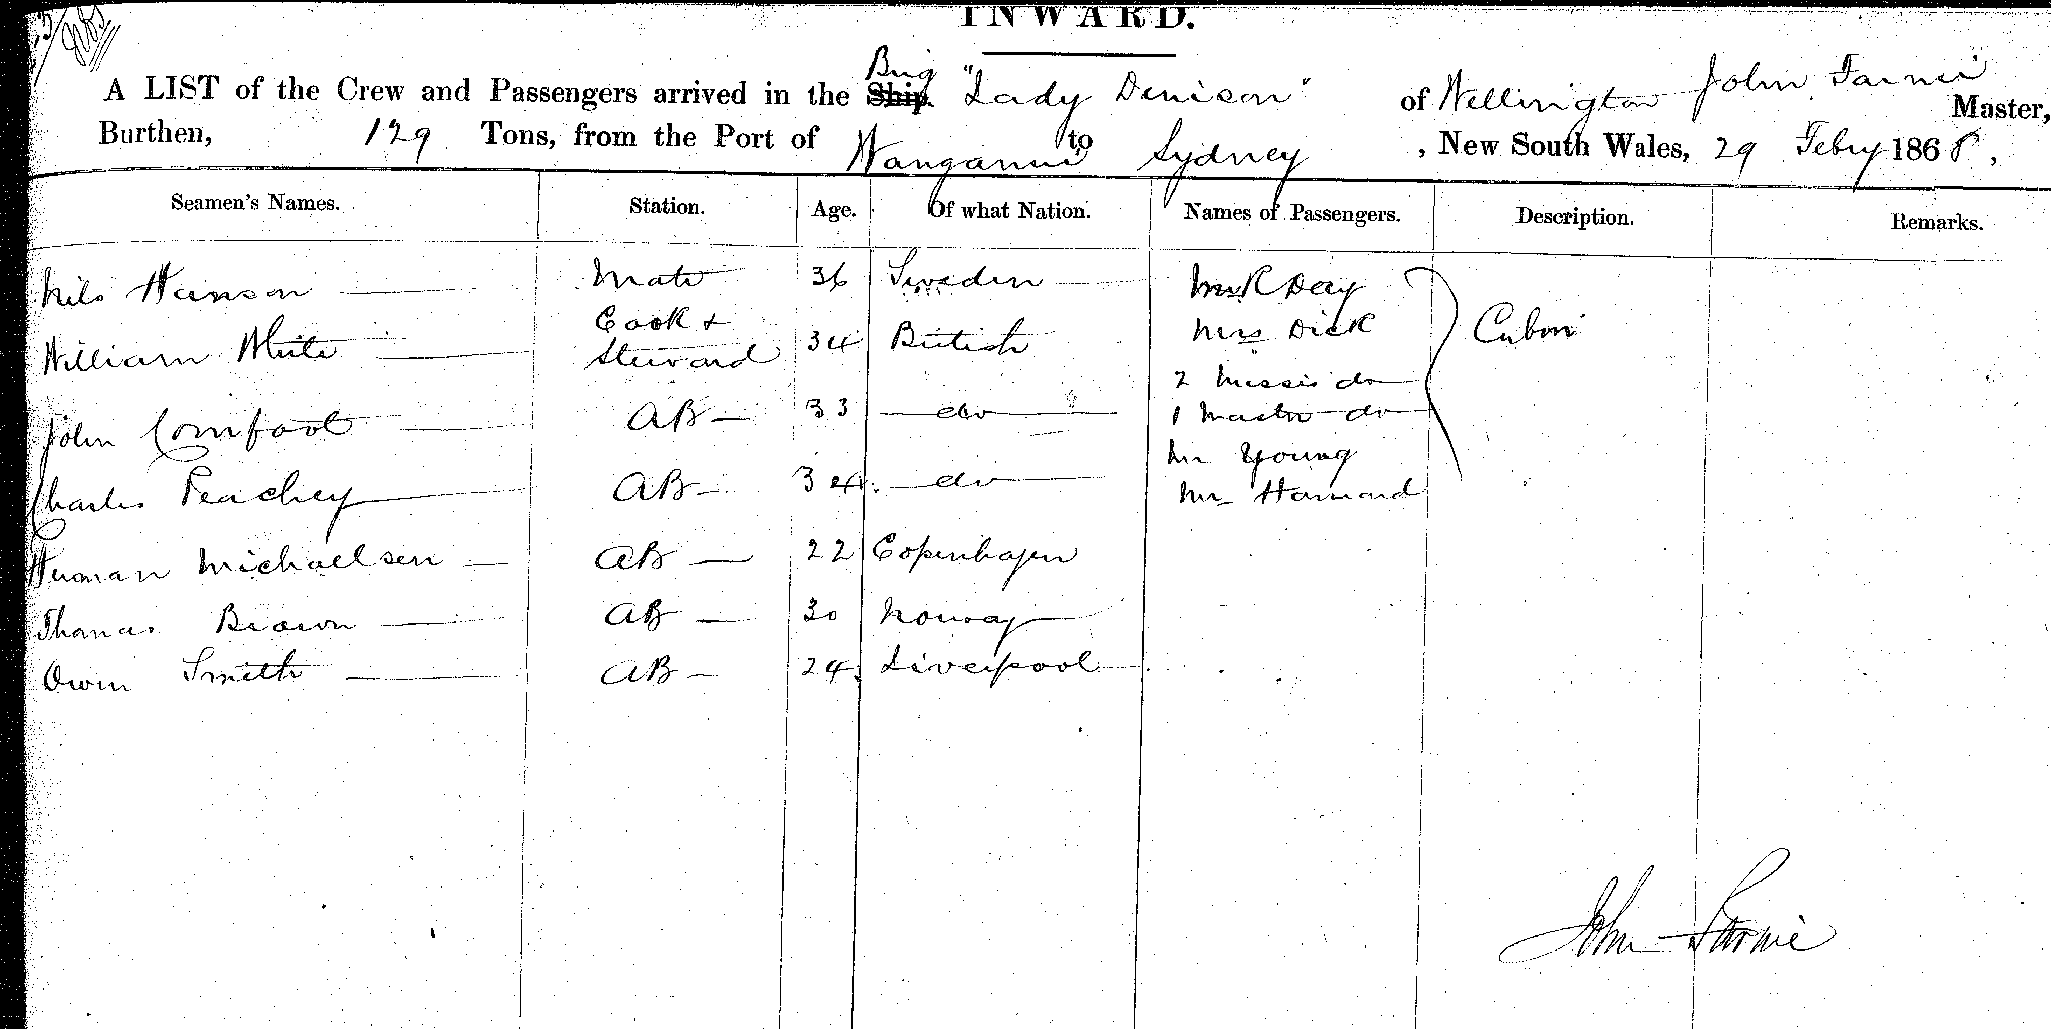 INWARD.
A LIST of the Crew and Passengers arrived in the Ship Brig "Lady Denison" of Wellington John Farnie Master,
Burthen, 129 Tons, from the Port of Wanganui to Sydney, New South Wales, 29 Febry 1868,
Seamen's Names. Station. Age. Of what Nation. Names of Passengers. Description. Remarks.
Nils Hanson Mate 36 Sweden Mr R Day
William White Cook & Steward 34 British Mrs Dick Cabin
2 Misses do
John Comfoot AB 33 do 1 Master do
Mr Young
Charles Peachey AB 34 do Mr
Herman Michaelsen AB 22 Copenhagen
Thomas Brown AB 30 Norway
Owen Smith AB 24 Liverpool
John Farnie